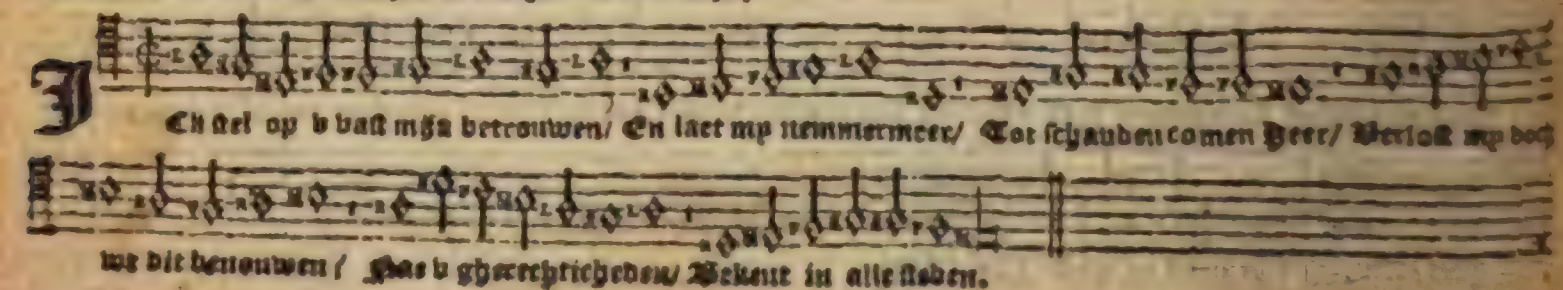 ICk stel op v vast mijn betrouwen/ En laet my nemmermeer/ Tot schanden comen Heer/ Verlost my doch
wt dit benouwen/ Nae v gherechticheden/ Bekent in alle steden.